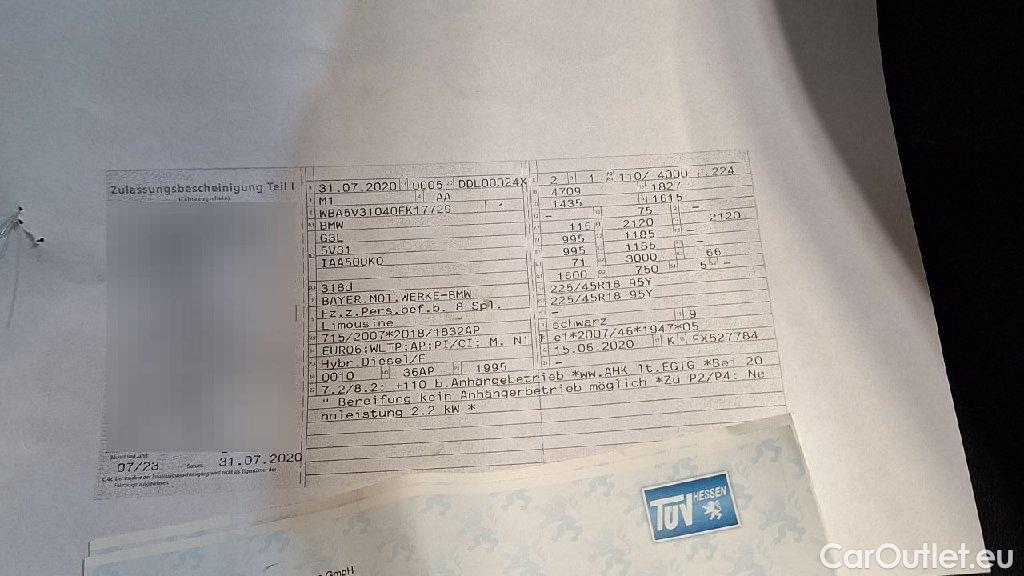 Zulassungsbescheinigung Teil I
31.07.2020 0005 DDL00024X
M1 AA
BMW
G3L
5V31
318d
BAYER.MOT.WERKE-BMW
Fz.z.Pers.bef.b. 8 Spl.
Limousine
715/2007*2018/1832AP
EURO6;WLTP;AP;PI/CI; M, N1
Hybr.Diesel/E
0010 36AP 1995
2 1 110/ 4000 224
4709 1827
1435 1615
- 75 -
116 2120 2120
995 1185
995 1185
71 3000 66
1600 750 5 -
225/45R18 95Y
225/45R18 95Y
-
schwarz 9
e1*2007/46*1947*05
15.06.2020 K FX527784
-
7.2/8.2: +110 b.Anhängebetrieb *ww.AHK lt.EGTG *Bei 20
" Bereifung kein Anhängerbetrieb möglich *Zu P2/P4: Ne
nnleistung 2.2 kW *
07/23 31.07.2020
TÜV HESSEN
GmbH
CarOutlet.eu